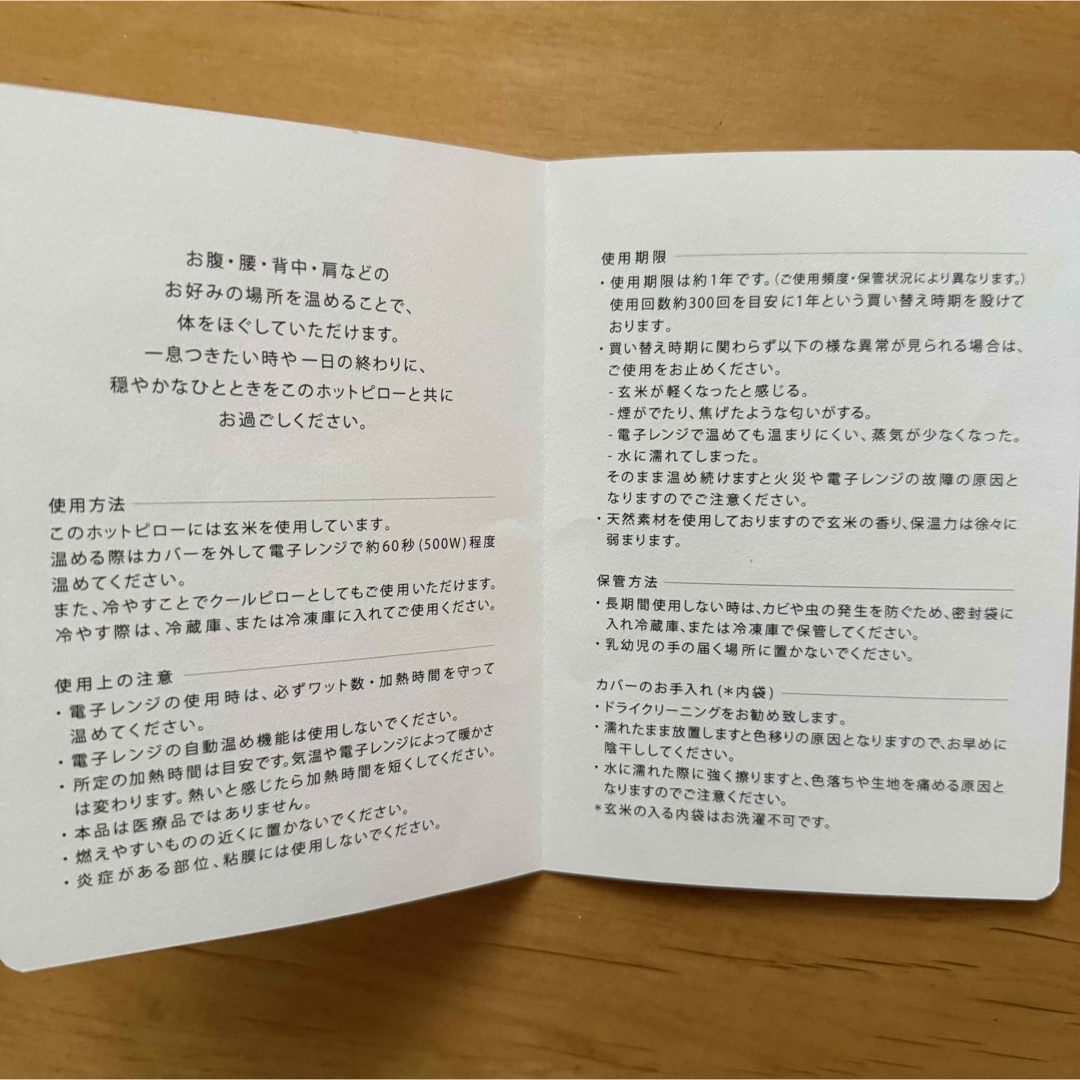 お腹・腰・背中・肩などの
お好みの場所を温めることで、
体をほぐしていただけます。
一息つきたい時や一日の終わりに、
穏やかなひとときをこのホットピローと共に
お過ごしください。
使用方法
このホットピローには玄米を使用しています。
温める際はカバーを外して電子レンジで約60秒(500W)程度
温めてください。
また、冷やすことでクールピローとしてもご使用いただけます。
冷やす際は、冷蔵庫、または冷凍庫に入れてご使用ください。
使用上の注意
・電子レンジの使用時は、必ずワット数・加熱時間を守って
温めてください。
・電子レンジの自動温め機能は使用しないでください。
・所定の加熱時間は目安です。気温や電子レンジによって暖かさ
は変わります。熱いと感じたら加熱時間を短くしてください。
・本品は医療品ではありません。
・燃えやすいものの近くに置かないでください。
・炎症がある部位、粘膜には使用しないでください。
使用期限
・使用期限は約1年です。(ご使用頻度・保管状況により異なります。)
使用回数約300回を目安に1年という買い替え時期を設けて
おります。
・買い替え時期に関わらず以下の様な異常が見られる場合は、
ご使用をお止めください。
- 玄米が軽くなったと感じる。
- 煙がでたり、焦げたような匂いがする。
- 電子レンジで温めても温まりにくい、蒸気が少なくなった。
- 水に濡れてしまった。
そのまま温め続けますと火災や電子レンジの故障の原因と
なりますのでご注意ください。
・天然素材を使用しておりますので玄米の香り、保温力は徐々に
弱まります。
保管方法
・長期間使用しない時は、カビや虫の発生を防ぐため、密封袋に
入れ冷蔵庫、または冷凍庫で保管してください。
・乳幼児の手の届く場所に置かないでください。
カバーのお手入れ(*内袋)
・ドライクリーニングをお勧め致します。
・濡れたまま放置しますと色移りの原因となりますので、お早めに
陰干ししてください。
・水に濡れた際に強く擦りますと、色落ちや生地を痛める原因と
なりますのでご注意ください。
*玄米の入る内袋はお洗濯不可です。